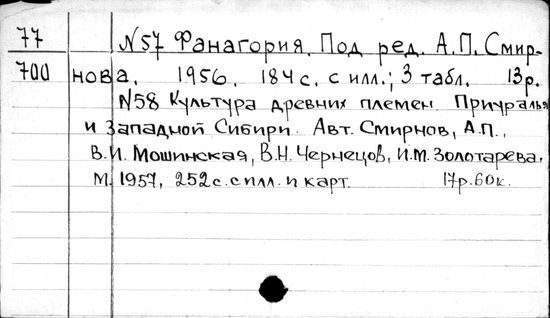 77 N57 Фанагория. Под ред. А.П. Смир-
700 нова. 1956. 184 с. с илл.; 3 табл. 13р.
N58 Культура древних племен Приуралья
и Западной Сибири. Авт. Смирнов, А.П.,
В.И. Мошинская, В.Н. Чернецов, И.М. Золотарева.
М. 1957, 252с. с илл. и карт. 17р.60к.